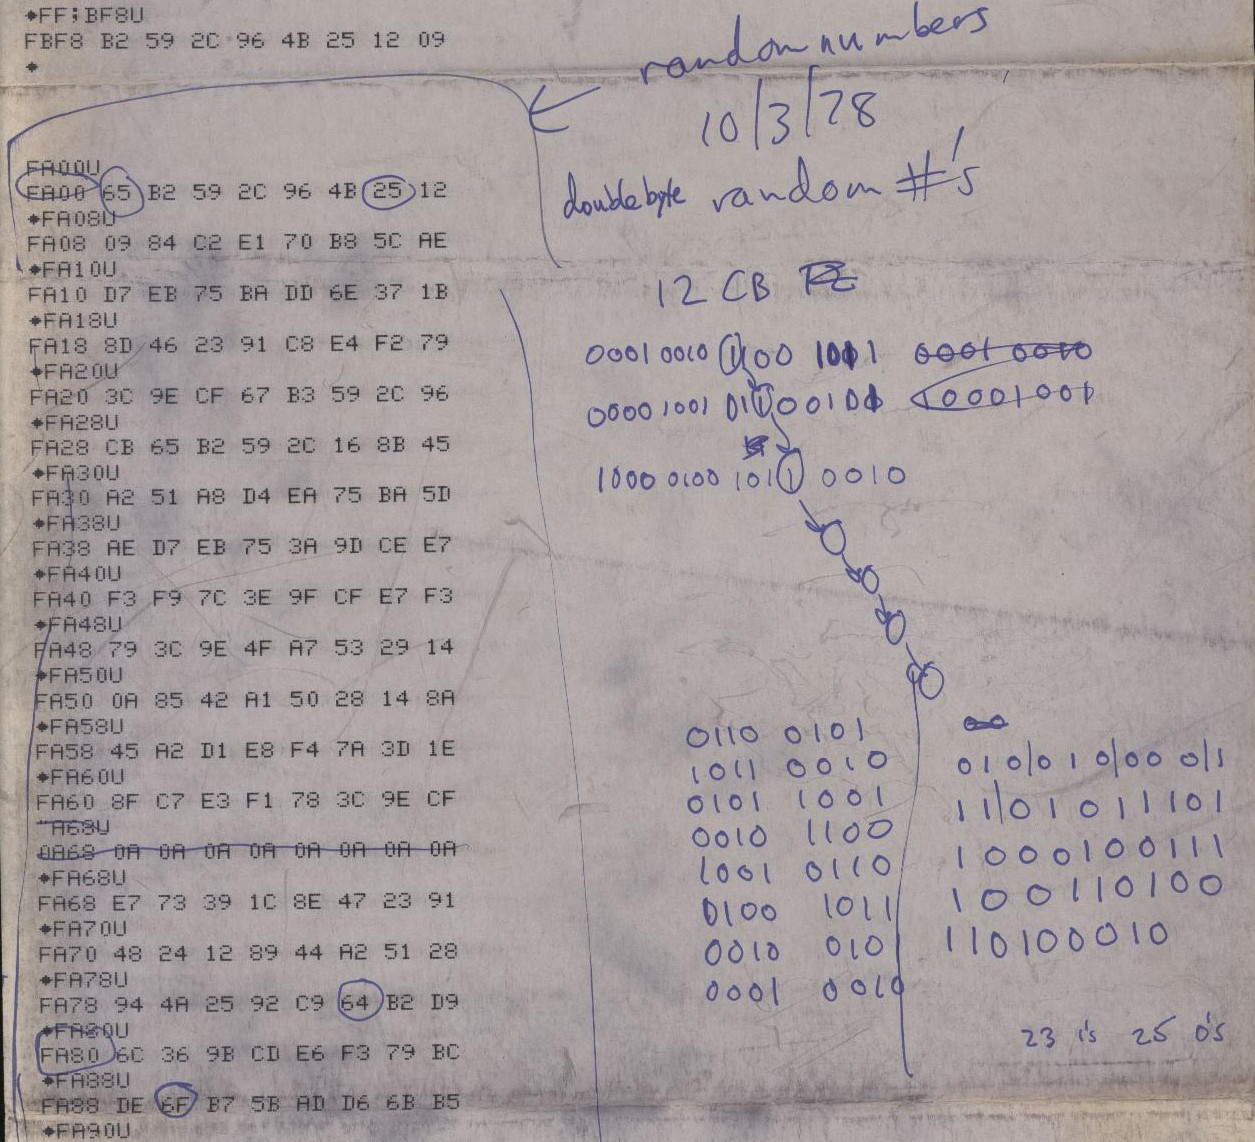 ♦FF;BF8U
FBF8 B2 59 2C 96 4B 25 12 09
♦
random numbers
10/3/78
doublebyte random #'s
FA00U
FA00 65 B2 59 2C 96 4B 25 12
♦FA08U
FA08 09 84 C2 E1 70 B8 5C AE
♦FA10U
FA10 D7 EB 75 BA DD 6E 37 1B
♦FA18U
FA18 8D 46 23 91 C8 E4 F2 79
♦FA20U
FA20 3C 9E CF 67 B3 59 2C 96
♦FA28U
FA28 CB 65 B2 59 2C 16 8B 45
♦FA30U
FA30 A2 51 A8 D4 EA 75 BA 5D
♦FA38U
FA38 AE D7 EB 75 3A 9D CE E7
♦FA40U
FA40 F3 F9 7C 3E 9F CF E7 F3
♦FA48U
FA48 79 3C 9E 4F A7 53 29 14
♦FA50U
FA50 0A 85 42 A1 50 28 14 8A
♦FA58U
FA58 45 A2 D1 E8 F4 7A 3D 1E
♦FA60U
FA60 8F C7 E3 F1 78 3C 9E CF
A68U
0A68 0A 0A 0A 0A 0A 0A 0A 0A
♦FA68U
FA68 E7 73 39 1C 8E 47 23 91
♦FA70U
FA70 48 24 12 89 44 A2 51 28
♦FA78U
FA78 94 4A 25 92 C9 64 B2 D9
♦FA80U
FA80 6C 36 9B CD E6 F3 79 BC
♦FA88U
FA88 DE 6F B7 5B AD D6 6B B5
♦FA90U
12 CB
0001 0010 1100 1001 0001 0010
0000 1001 0110010 10001001
1000 0100 1011 0010
0110 0101
1011 0010
0101 1001
0010 1100
1001 0110
0100 1011
0010 010
0001 0010
010/010/00 0/1
11/01011101
1000100111
100110100
110100010
23 1's 25 0's